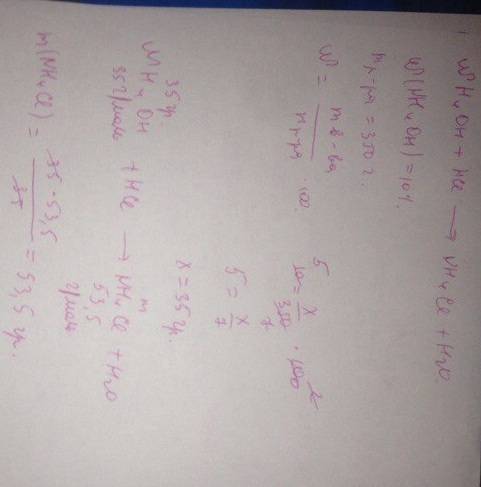 NH₄OH + HCl → NH₄Cl + H₂O.
W(NH₄OH) = 10%.
m р-ра = 350 г.
W = m в-ва / m р-ра · 100
10 = x / 350 · 100
5 = x / 7
x = 35 гр.
35 гр. m
NH₄OH + HCl → NH₄Cl + H₂O
35 г/моль 53,5 г/моль
m(NH₄Cl) = 35 · 53,5 / 35 = 53,5 гр.